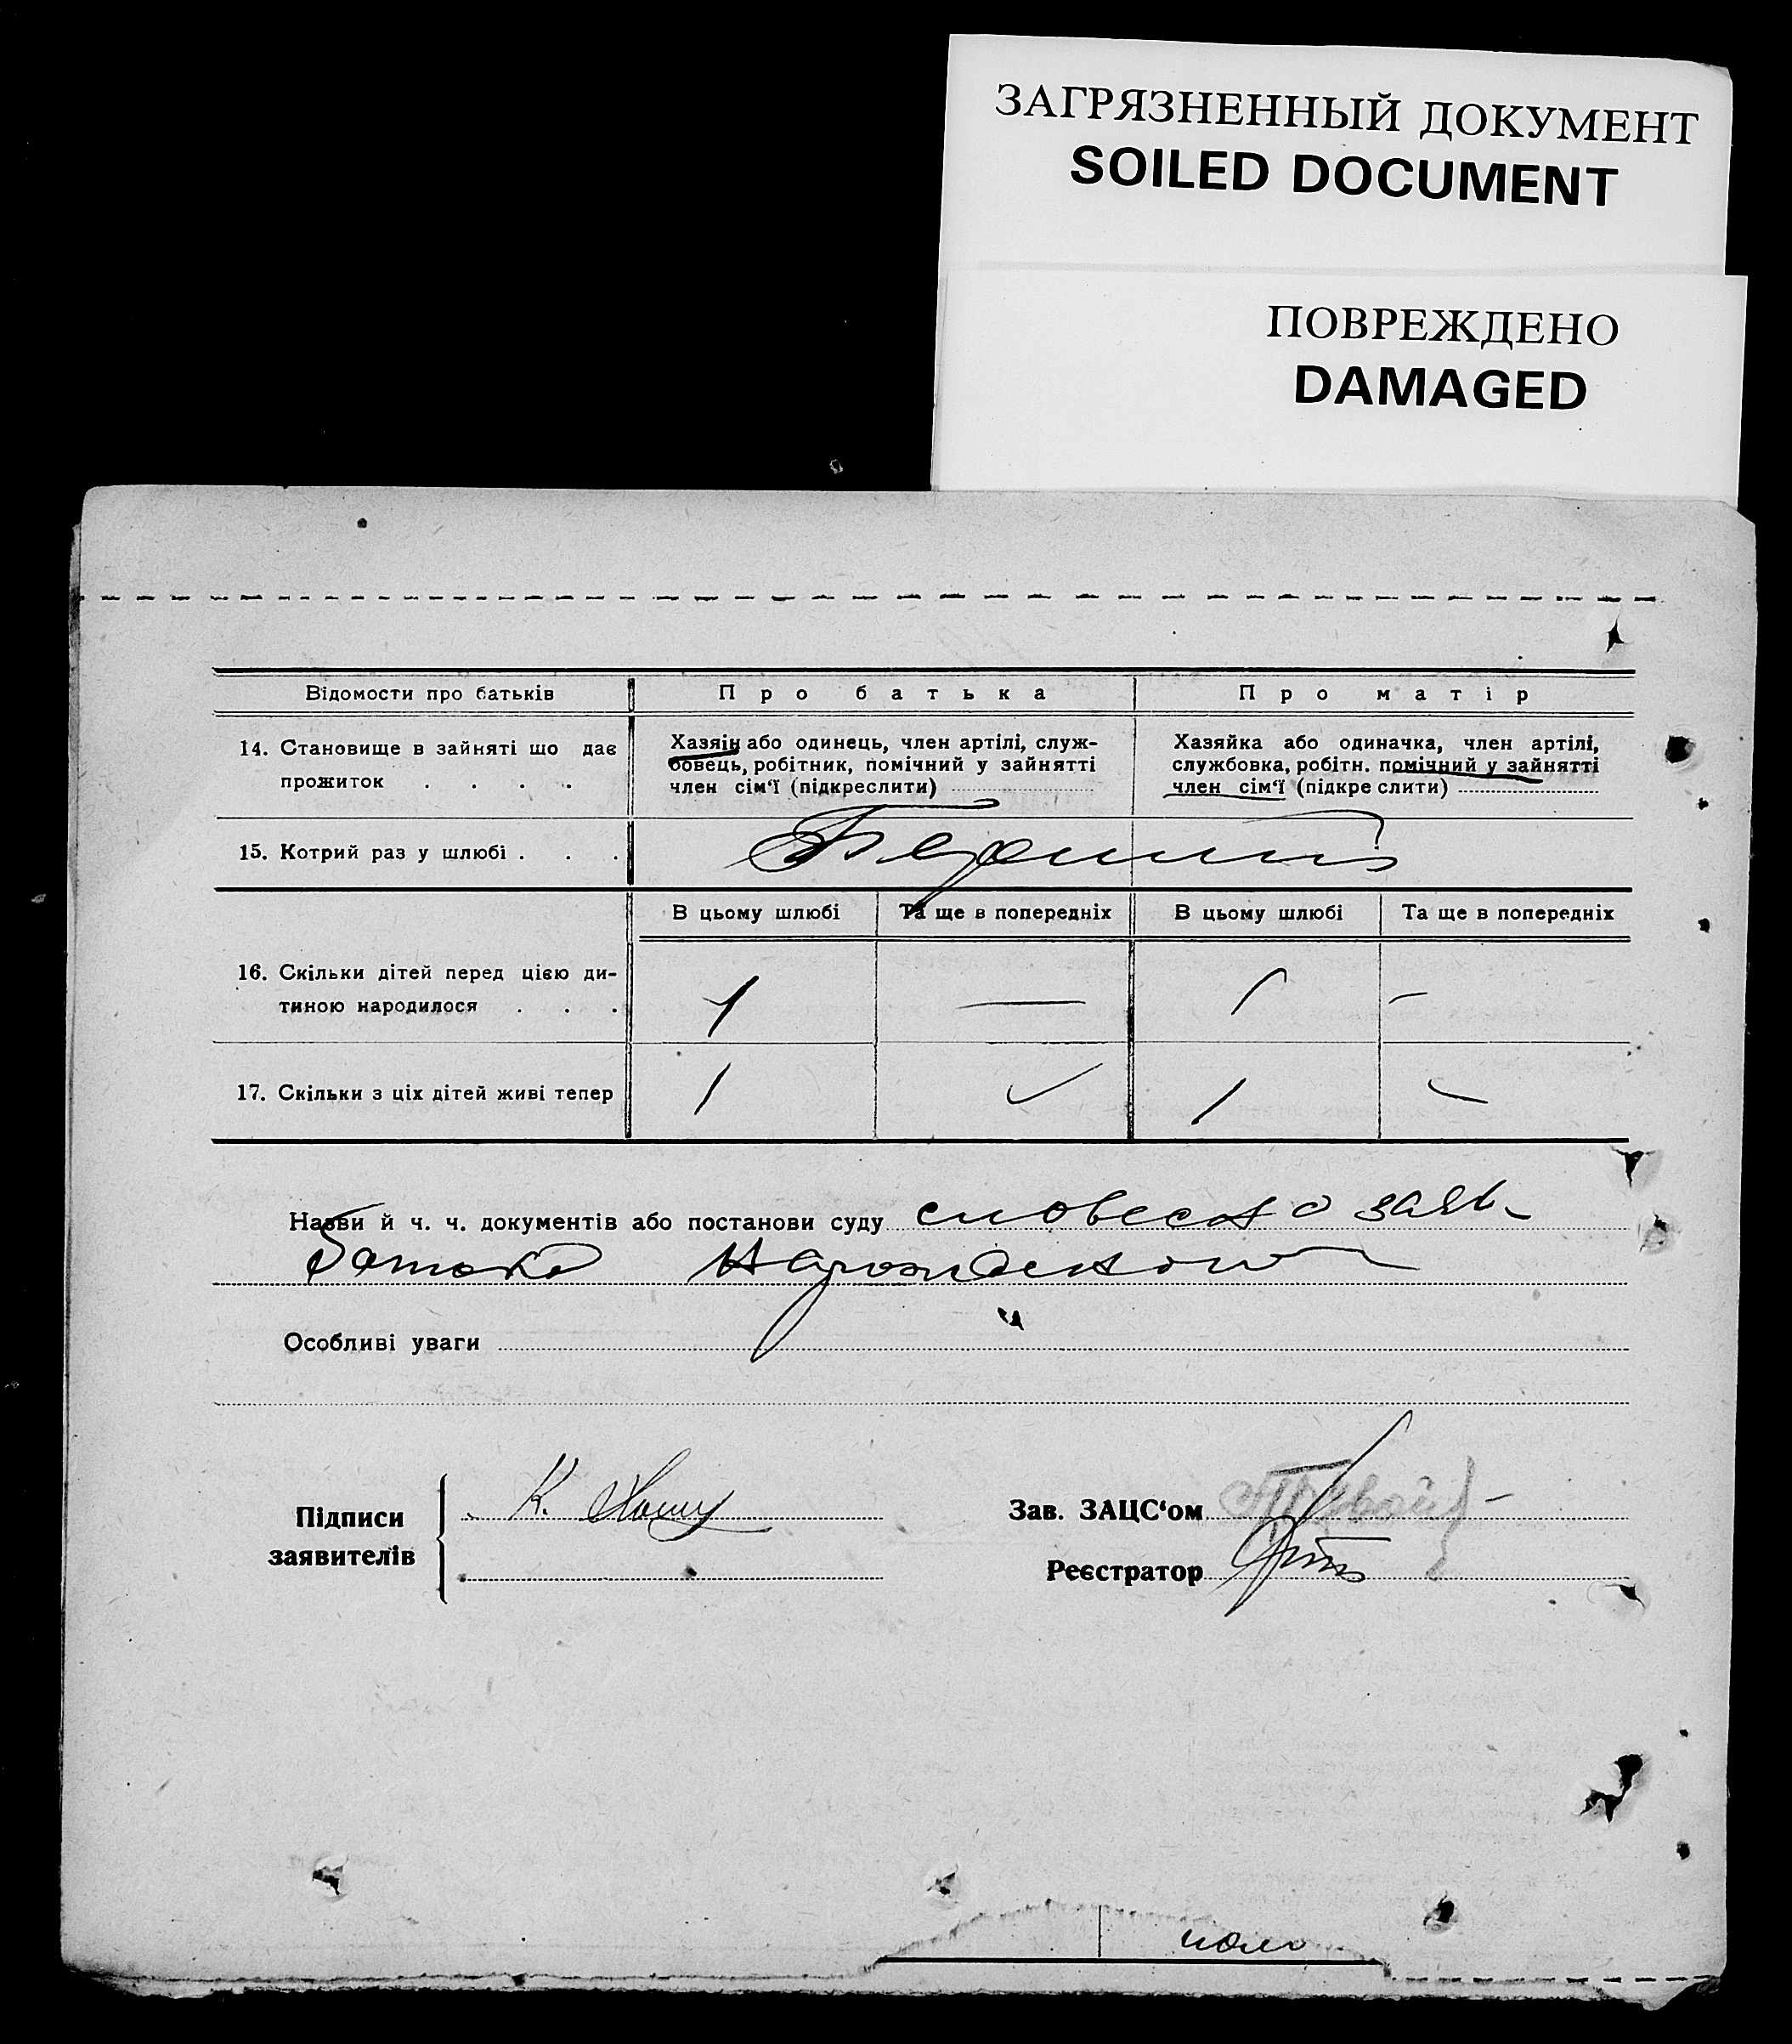 ЗАГРЯЗНЕННЫЙ ДОКУМЕНТ
SOILED DOCUMENT
ПОВРЕЖДЕНО
DAMAGED
Відомости про батьків Про батька Про матір
14. Становище в зайняті що дає прожиток . . . .
Хазяін або одинець, член артілі, служ-
бовець, робітник, помічний у зайнятті
член сім‘ї (підкреслити)
Хазяйка або одиначка, член артілі,
службовка, робітн. помічний у зайнятті
член сім‘ї (підкре слити)
15. Котрий раз у шлюбі . . .
В цьому шлюбі Та ще в попередніх В цьому шлюбі Та ще в попередніх
16. Скільки дітей перед цією ди-
тиною народилося . . . 1 — 1 –
17. Скільки з ціх дітей живі тепер 1 1
Назви й ч. ч. документів або постанови суду словесно заяв-
батько
Особливі уваги
Підписи
заявителів
К.
Зав. ЗАЦС‘ом
Реєстратор